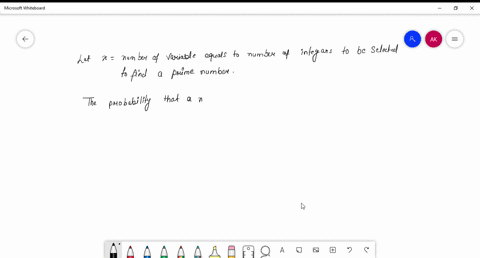 Microsoft Whiteboard
AK
Let x = number of variable equals to number of integers to be selected
to find a prime number.
The probability that a x
A